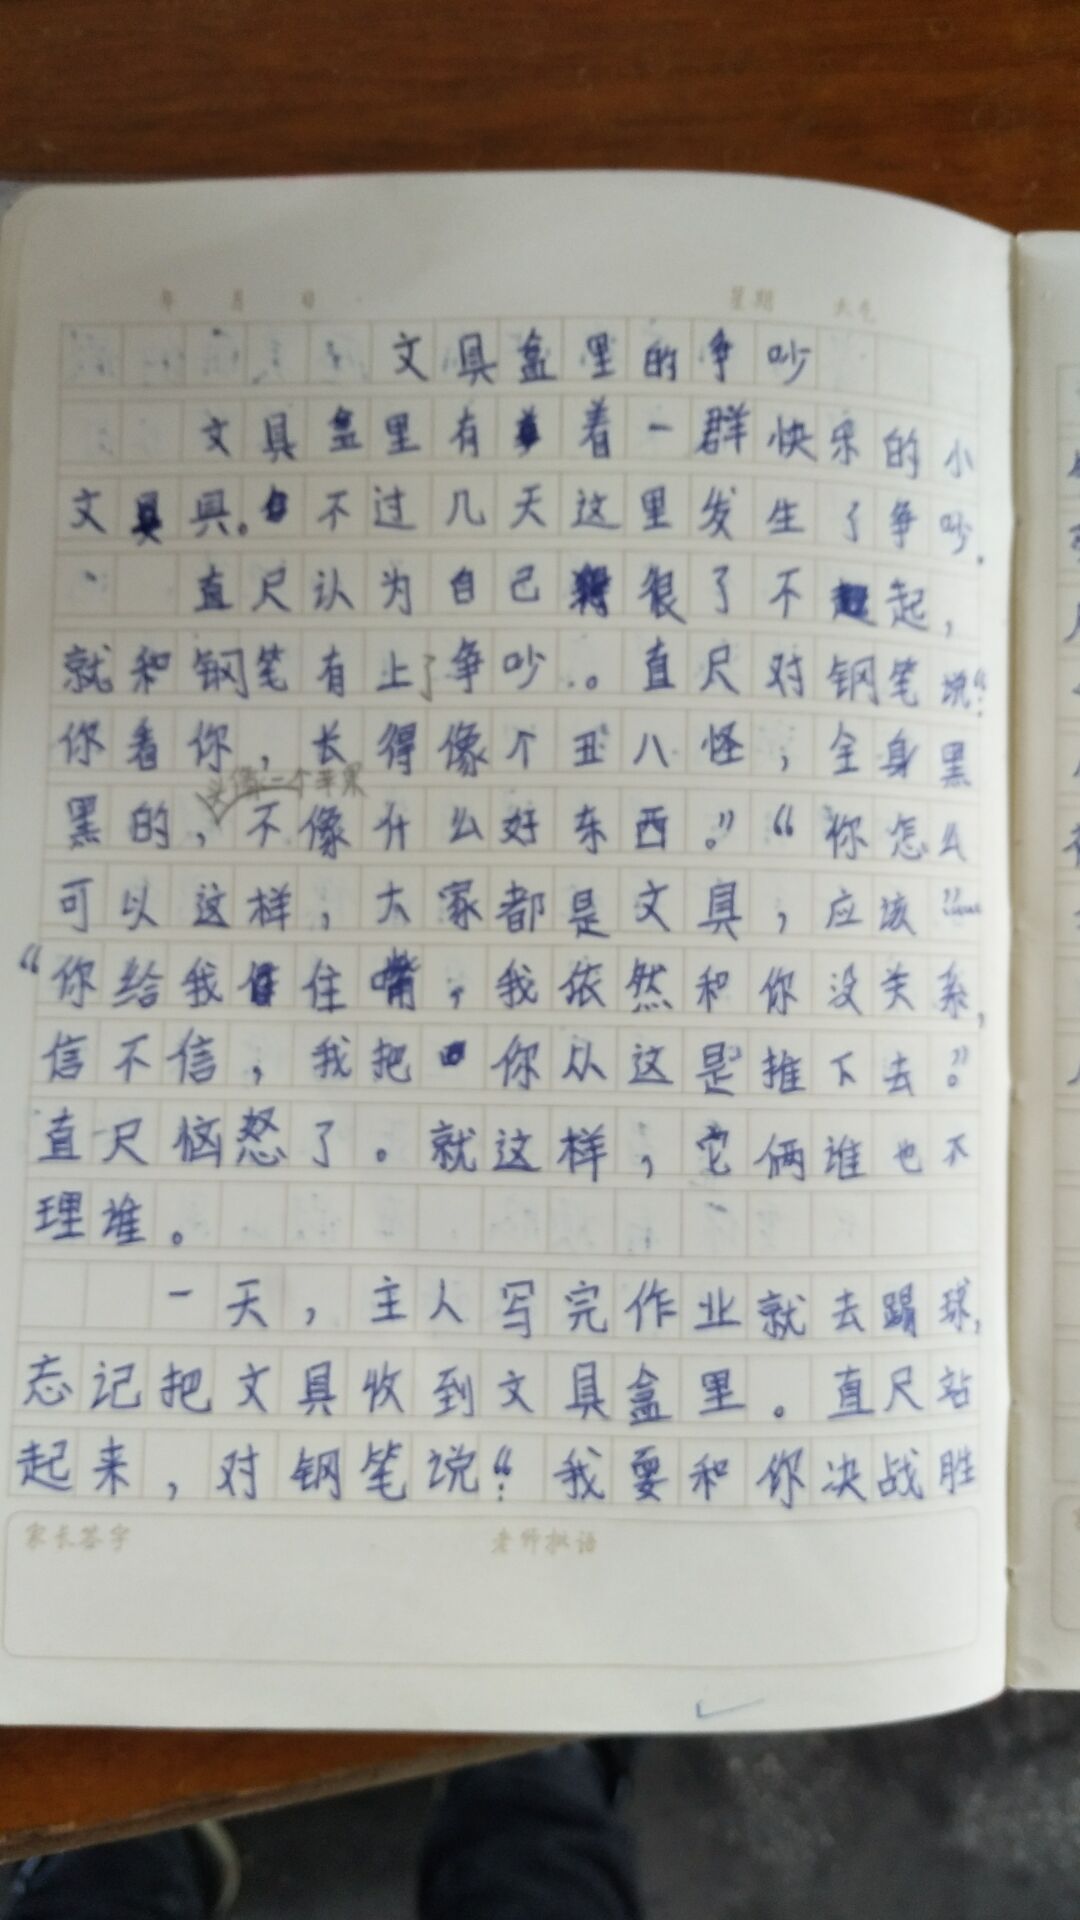 年 月 日 星期 天气
文具盒里的争吵
文具盒里有着一群快乐的小
文具。不过几天这里发生了争吵.
直尺认为自己很了不起，
就和钢笔有上了争吵。直尺对钢笔说:“
你看你，长得像个丑八怪，全身黑
头像一个苹果
黑的，不像什么好东西。”“你怎么
可以这样，大家都是文具，应该……”
“你给我住嘴，我依然和你没关系,
信不信，我把你从这是推下去。”
直尺恼怒了。就这样，它俩谁也不
理谁。
一天，主人写完作业就去踢球,
忘记把文具收到文具盒里。直尺站
起来，对钢笔说:“我要和你决战胜
家长签字 老师批语